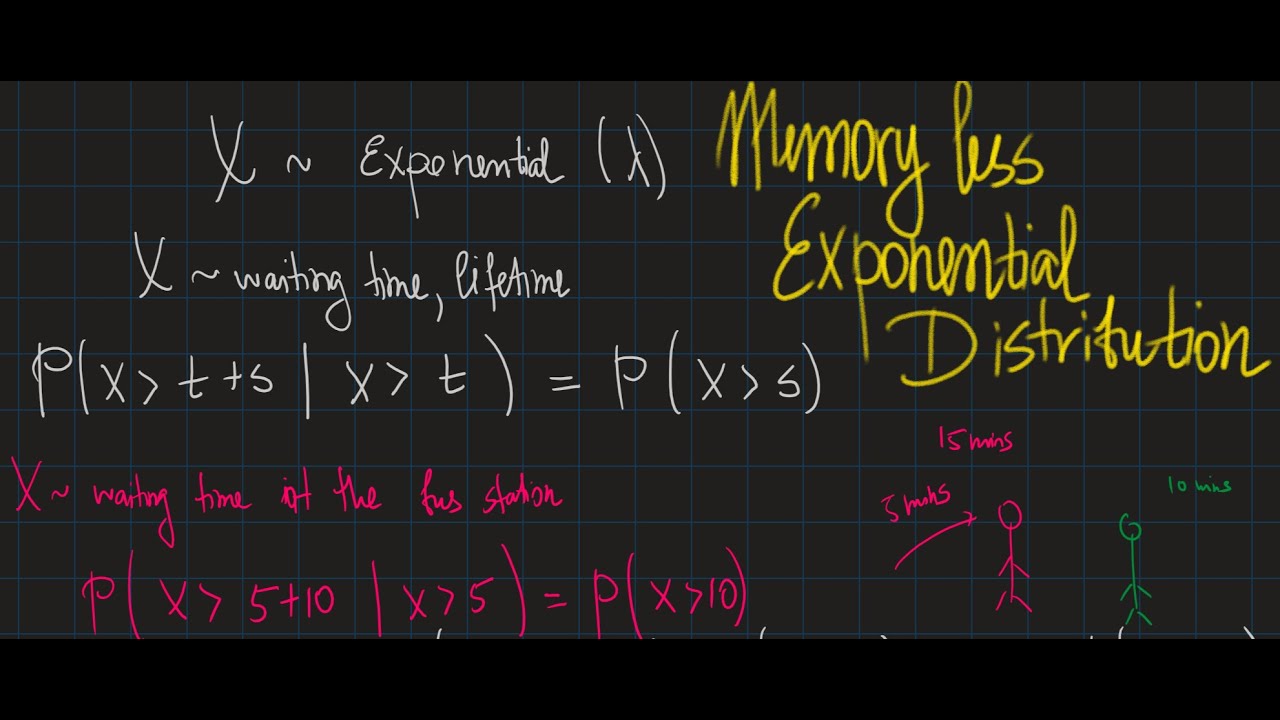 X ~ Exponential (λ)
Memory less
Exponential
Distritution
X ~ waiting time, lifetime
P(X > t+s | X > t) = P(X > s)
15 mins
X ~ waiting time at the bus station
5 mins
10 mins
P(X > 5+10 | X > 5) = P(X > 10)